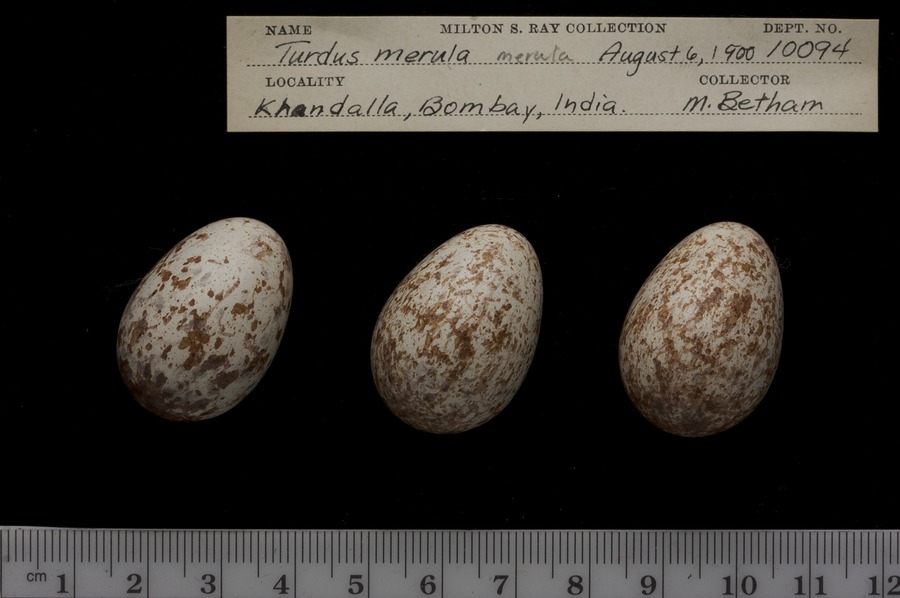 NAME MILTON S. RAY COLLECTION DEPT. NO.
Turdus merula merula August 6, 1900 10094
LOCALITY COLLECTOR
Khandalla, Bombay, India. M. Betham
cm 1 2 3 4 5 6 7 8 9 10 11 12